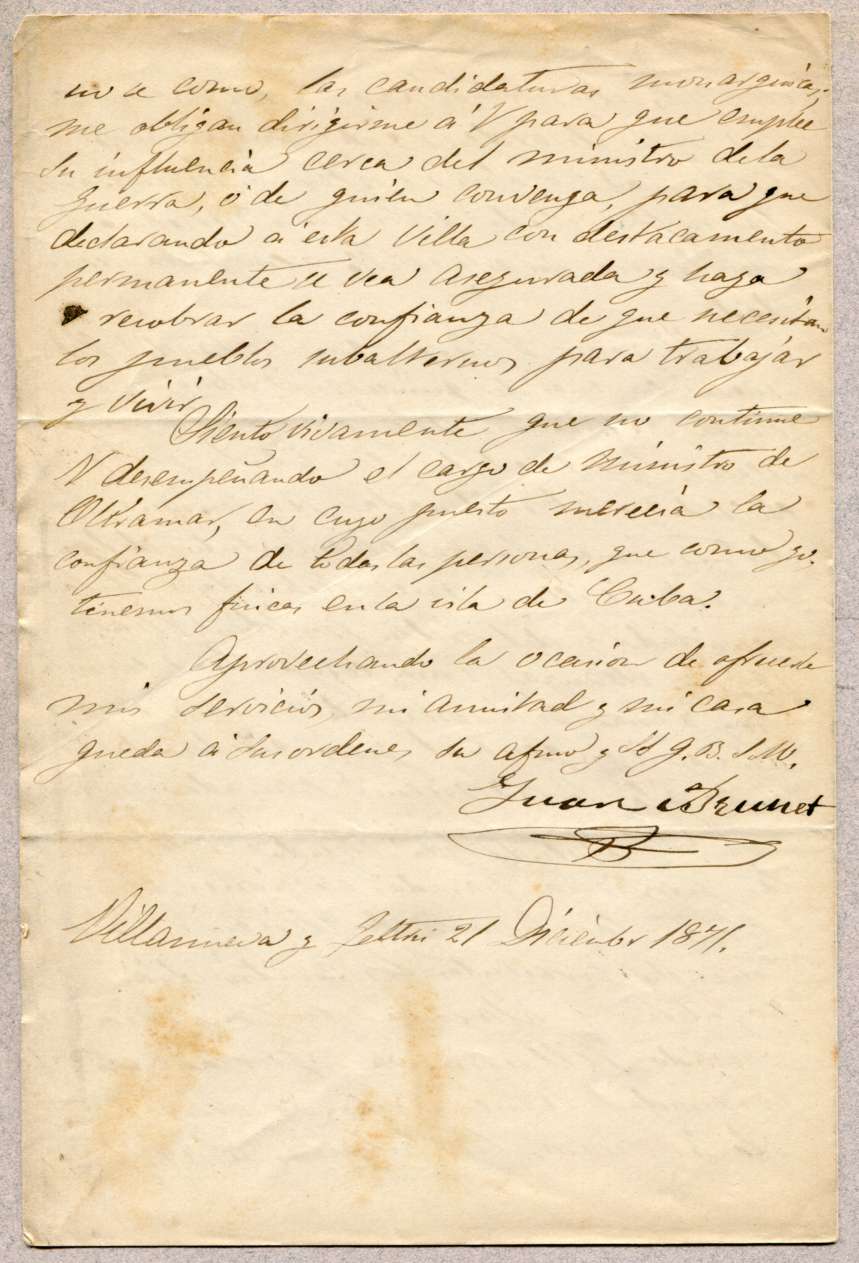 no se como, las candidaturas monarquicas,
me obligan dirigirme á V para que emplee
su influencia cerca del ministro de la
guerra, ó de quien convenga, para que
declarando á esta Villa con destacamento
permanente se vea asegurada y haga
recobrar la confianza de que necesitan
los pueblos subalternos para trabajar
y vivir.
Siento vivamente que no continue
V desempeñando el cargo de ministro de
Ultramar, en cuyo puesto merecia la
confianza de todas las personas, que como yo.
tenemos fincas en la isla de Cuba.
Aprovechando la ocasion de ofrecerle
mis servicios, mi amistad y mi casa
queda á sus ordenes su afmo y SS q. B. S. M.
Juan Brunet
Villanueva y Geltrú 21 Diciembr 1871.